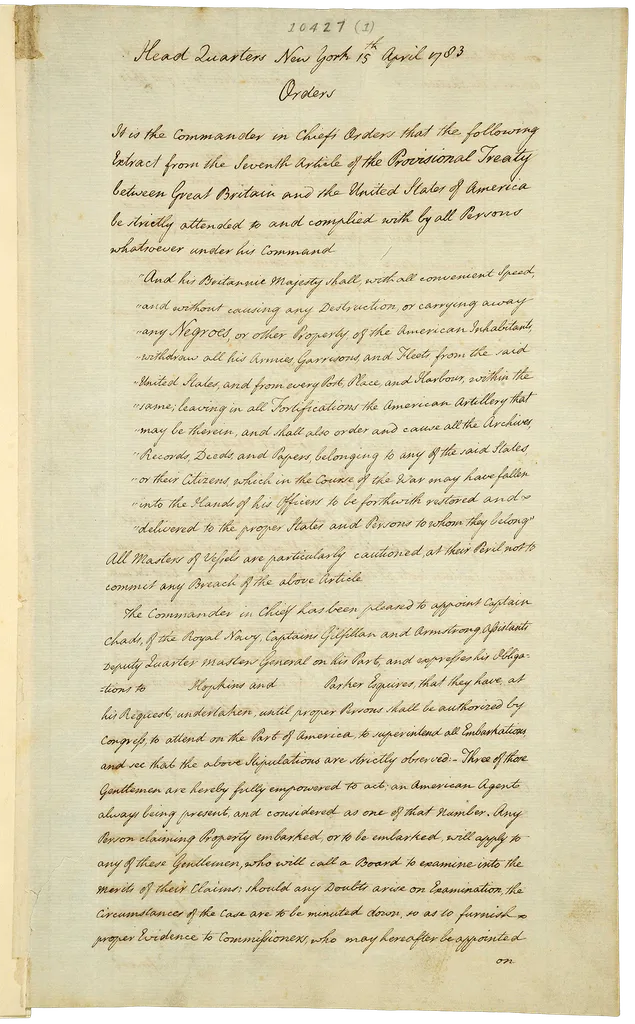 10427 (1)
Head Quarters New York 15th April 1783
Orders
It is the Commander in Chief's Orders that the following
Extract from the Seventh Article of the Provisional Treaty
between Great Britain and the United States of America
be strictly attended to and complied with by all Persons
whatsoever under his Command
"And his Britannic Majesty shall, with all convenient Speed,
"and without causing any Destruction, or carrying away
"any Negroes, or other Property of the American Inhabitants,
"withdraw all his Armies, Garrisons, and Fleets from the said
"United States, and from every Post, Place, and Harbour, within the
"same; leaving in all Fortifications the American Artillery that
"may be therein, and shall also order and cause all the Archives,
"Records, Deeds, and Papers, belonging to any of the said States
"or their Citizens, which in the Course of the War may have fallen
"into the Hands of his Officers to be forthwith restored and
"delivered to the proper States and Persons to whom they belong"
All Masters of Vessels are particularly cautioned, at their Peril not to
commit any Breach of the above Article
The Commander in Chief has been pleased to appoint Captain
Chads, of the Royal Navy, Captains Gilfillan and Armstrong, Assistants
Deputy Quarter Masters General on his Part, and expresses his Obliga-
-tions to Hopkins and Parker Esquires, that they have, at
his Request, undertaken, until proper Persons shall be authorized by
Congress, to attend on the Part of America, to superintend all Embarkations,
and see that the above Stipulations are strictly observed:- Three of those
Gentlemen are hereby fully empowered to act; an American Agent
always being present, and considered as one of that Number. Any
Person claiming Property embarked, or to be embarked, will apply to
any of these Gentlemen, who will call a Board to examine into the
merits of their Claims; should any Doubts arise on Examination, the
Circumstances of the Case are to be minuted down, so as to furnish
proper Evidence to Commissioners, who may hereafter be appointed
on